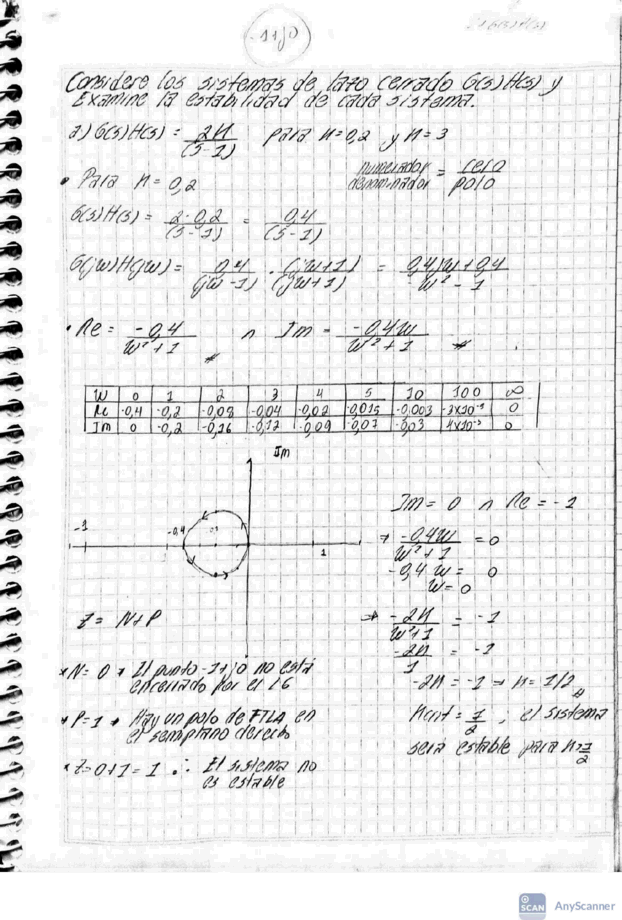 -1+j0
Considere los sistemas de lazo cerrado G(s)H(s) y
Examine la estabilidad de cada sistema.
a) G(s)H(s) = 2K / (S-1) para K=0,2 y K=3
• Para K=0,2
numerador / denominador = cero / polo
G(s)H(s) = 2·0,2 / (S-1) = 0,4 / (S-1)
G(jw)H(jw) = 0,4 / (jw-1) · (jw+1) / (jw+1) = 0,4jw+0,4 / -w²-1
• Re = -0,4 / w²+1 ∧ Im = -0,4w / w²+1
W 0 1 2 3 4 5 10 100 ∞
Re -0,4 -0,2 -0,08 -0,04 -0,02 -0,015 -0,003 0
Im 0 -0,2 -0,16 -0,12 -0,09 -0,07 -0,03 0
Im
-1 -0,4 1
Im = 0 ∧ Re = -1
→ -0,4w / w²+1 = 0
-0,4w = 0
w = 0
Z = N+P
→ -2K / w²+1 = -1
-2K / 1 = -1
-2K = -1 → K = 1/2
* N = 0 → El punto -1+j0 no está
encerrado por el LG
* P=1 → Hay un polo de FTLA en
el semiplano derecho
* Z=0+1=1 ∴ El sistema no
es estable
Kcrit = 1/2 ; el sistema
será estable para K>1/2
SCAN AnyScanner